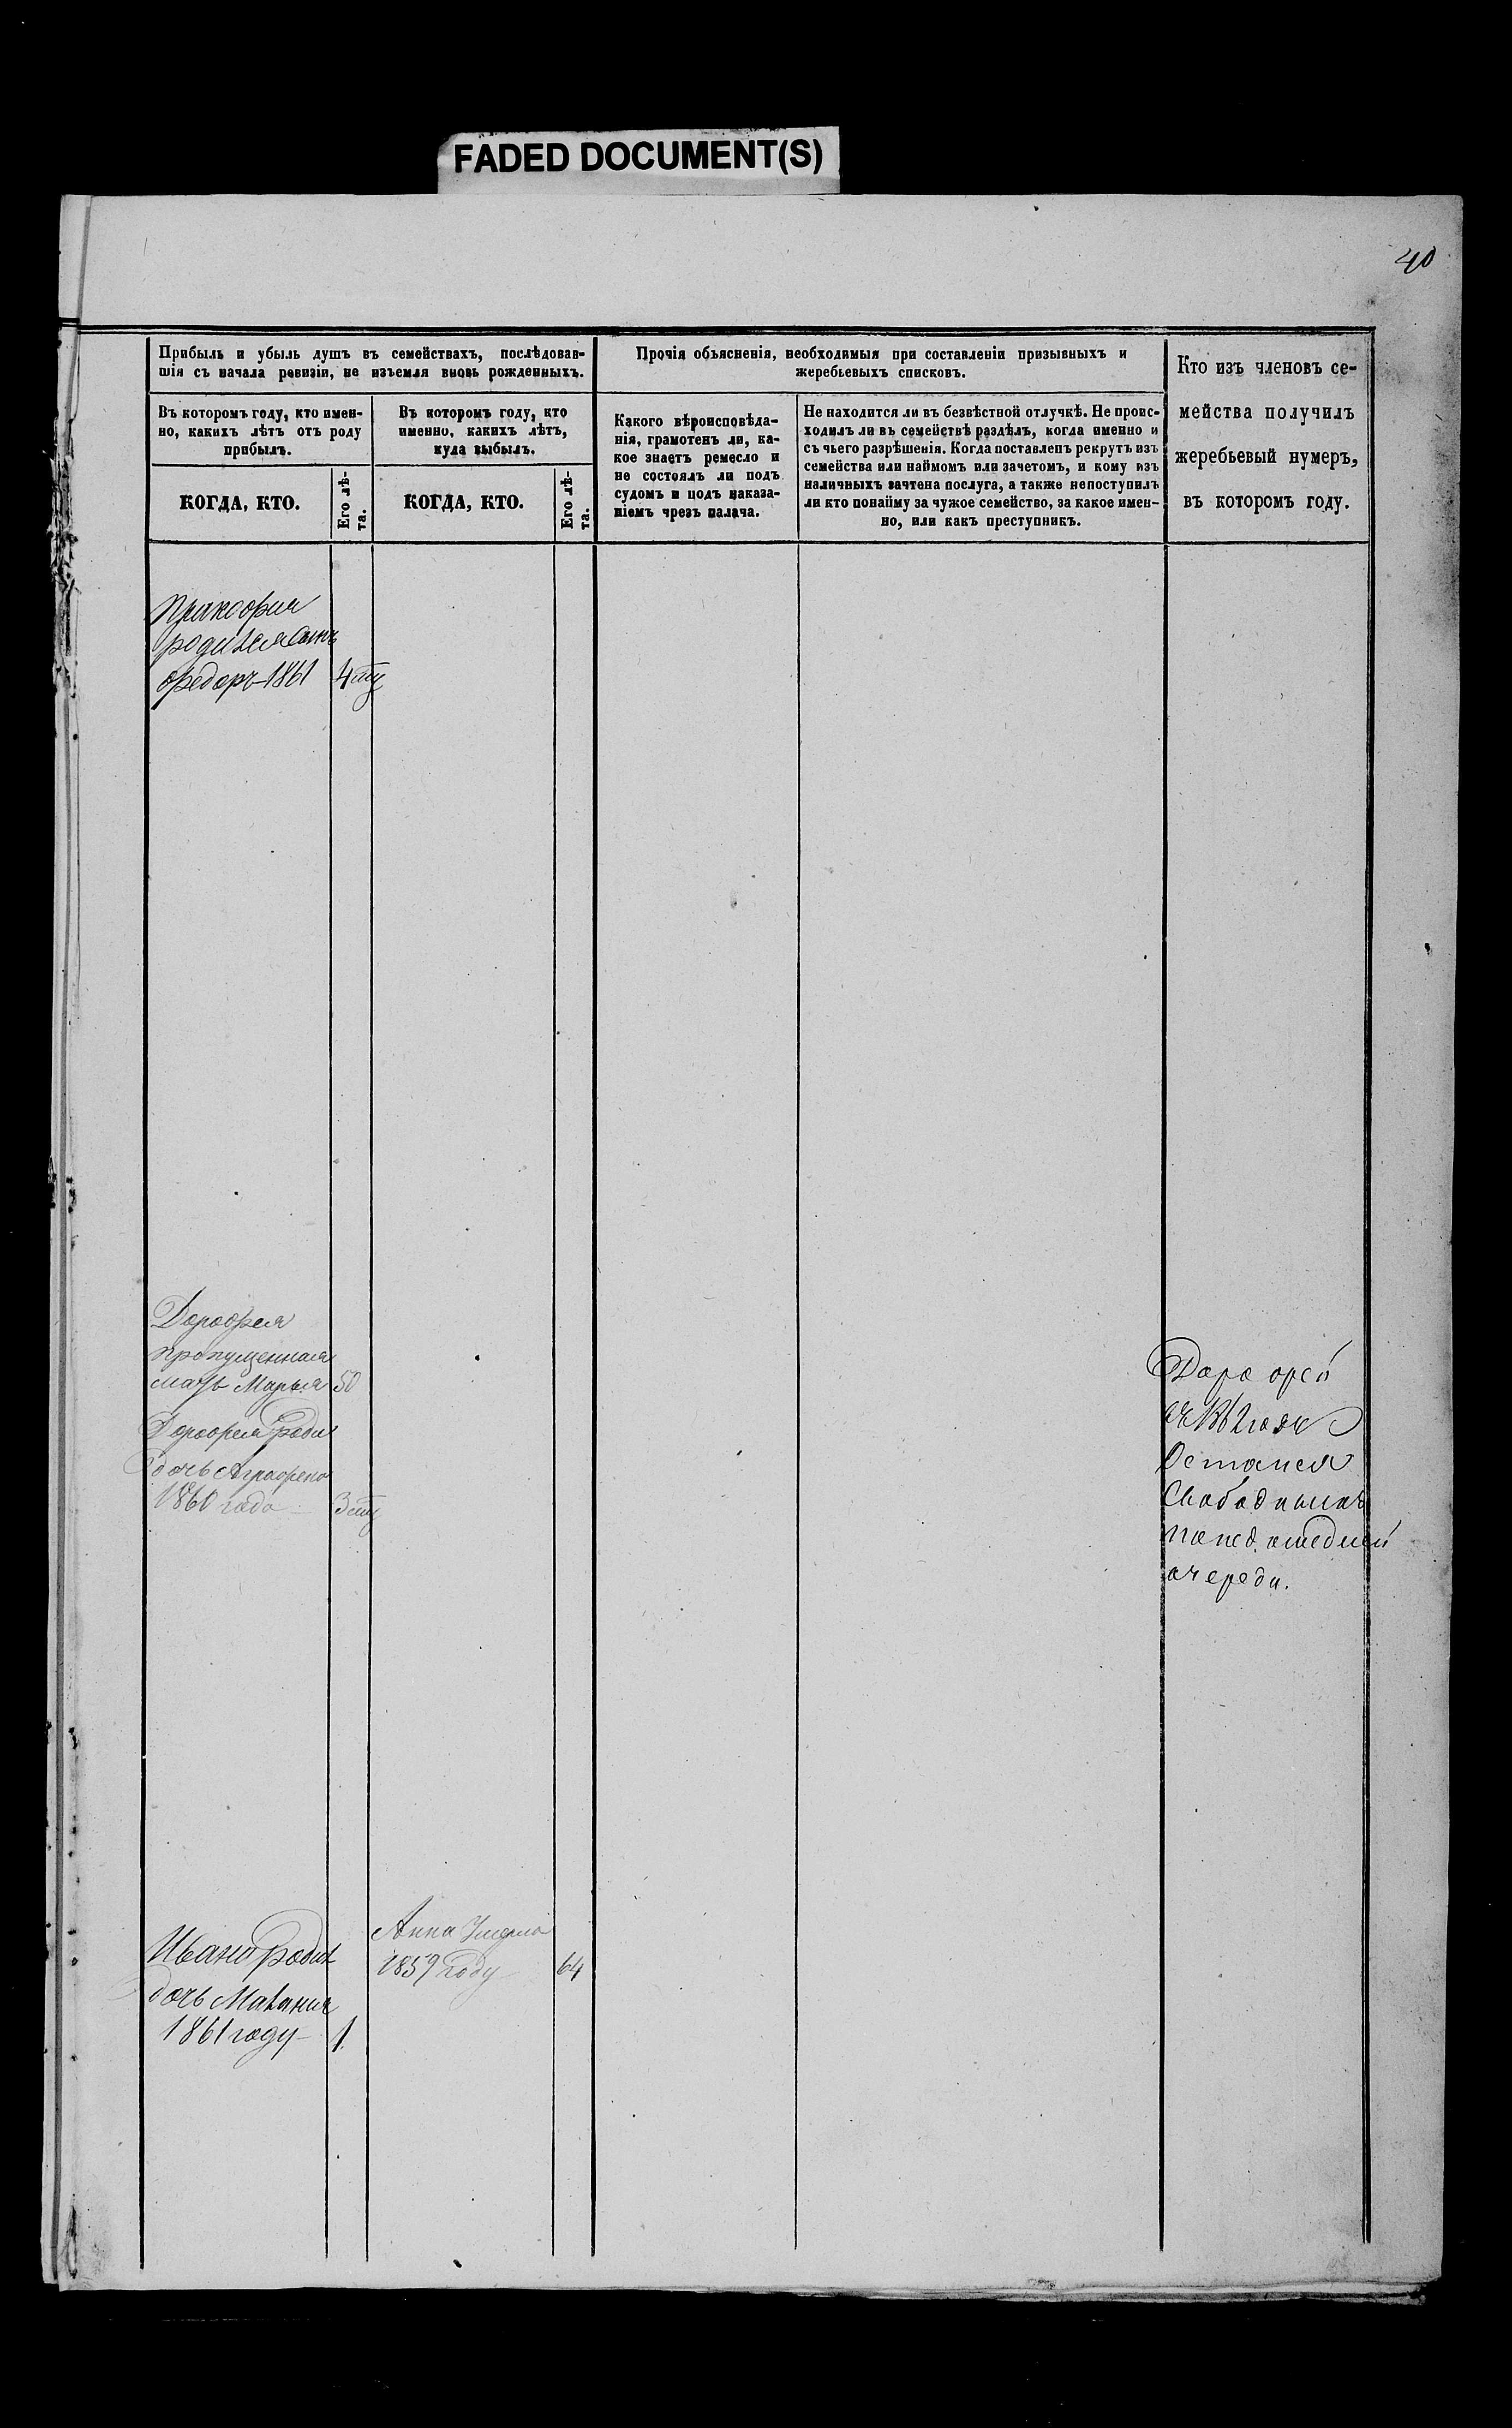 FADED DOCUMENT(S)
40
Прибыль и убыль душъ въ семействахъ, послѣдовав-
шія съ начала ревизіи, не изъемля вновь рожденныхъ.
Въ которомъ году, кто имен-
но, какихъ лѣтъ отъ роду
прибылъ.
КОГДА, КТО.
Его лѣ-
та.
Въ которомъ году, кто
именно, какихъ лѣтъ,
куда выбылъ.
КОГДА, КТО.
Его лѣ-
та.
Прочія объясненія, необходимыя при составленіи призывныхъ и
жеребьевыхъ списковъ.
Какого вѣроисповѣда-
нія, грамотенъ ли, ка-
кое знаетъ ремесло и
не состоялъ ли подъ
судомъ и подъ наказа-
ніемъ чрезъ палача.
Не находится ли въ безвѣстной отлучкѣ. Не проис-
ходилъ ли въ семействѣ раздѣлъ, когда именно и
съ чьего разрѣшенія. Когда поставленъ рекрутъ изъ
семейства или наймомъ или зачетомъ, и кому изъ
наличныхъ зачтена послуга, а также непоступилъ
ли кто понайму за чужое семейство, за какое имен-
но, или какъ преступникъ.
Кто изъ членовъ се-
мейства получилъ
жеребьевый нумеръ,
въ которомъ году.
родился сынъ
Федоръ 1861 4
Дорофея
пропущенная
мать Марья 50
Дорофея роди
дочь Аграфена
1860 года 3
Дорофей
1862 года
Остался
Свободнымъ
очереди.
Ивана родил
дочь Маланья
1861 году 1
Анна Умерла
1859 году 64